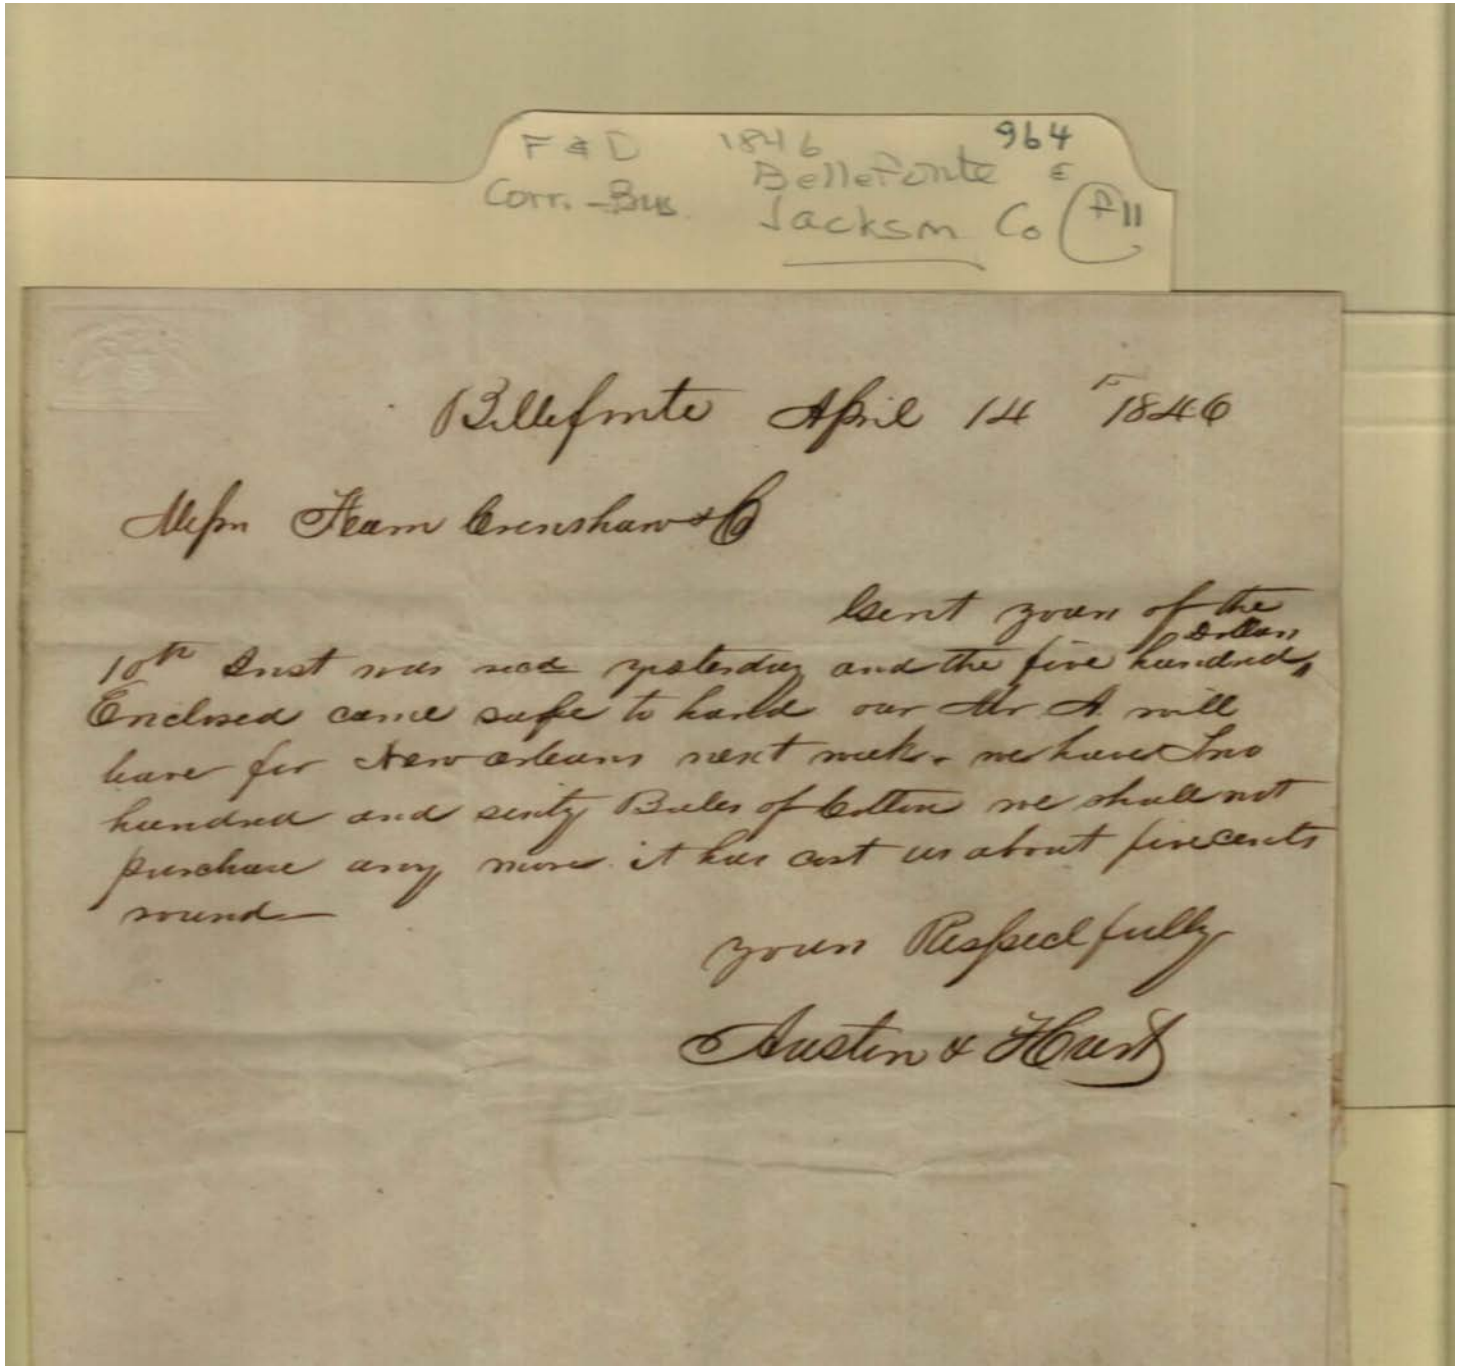 F & D 1846 964
Bellefonte E
Corr. - Bus. Jackson Co F11
Bellefonte April 14th 1846
Messrs Fearn Crenshaw & Co
Gent yours of the
10th Inst was recd yesterday and the five hundred Dollars
Enclosed came safe to hand our Mr A. will
leave for New orleans next week. we have Two
hundred and sixty Bales of Cotton we shall not
purchase any more it has cost us about five cents
round
yours Respectfully
Austin & Hurt